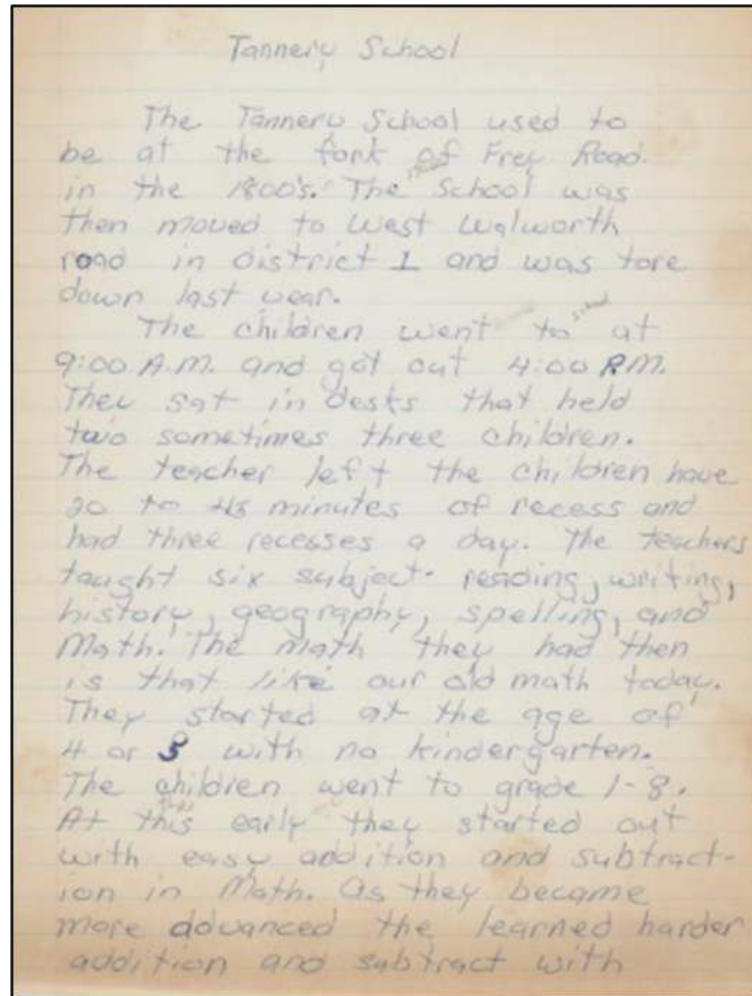 Tannery School
The Tannery School used to
be at the fork of Frey Road
in the 1800's. The School was
then moved to West Walworth
road in district 1 and was tore
down last year.
The children went to school at
9:00 A.M. and got out 4:00 P.M.
They sat in desks that held
two sometimes three children.
The teacher left the children have
20 to 45 minutes of recess and
had three recesses a day. The teachers
taught six subject- reading, writing,
history, geography, spelling, and
Math. The math they had then
is that like our old math today.
They started at the age of
4 or 5 with no kindergarten.
The children went to grade 1-8.
At this early they started out
with easy addition and subtract-
ion in Math. As they became
more advanced the learned harder
addition and subtract with